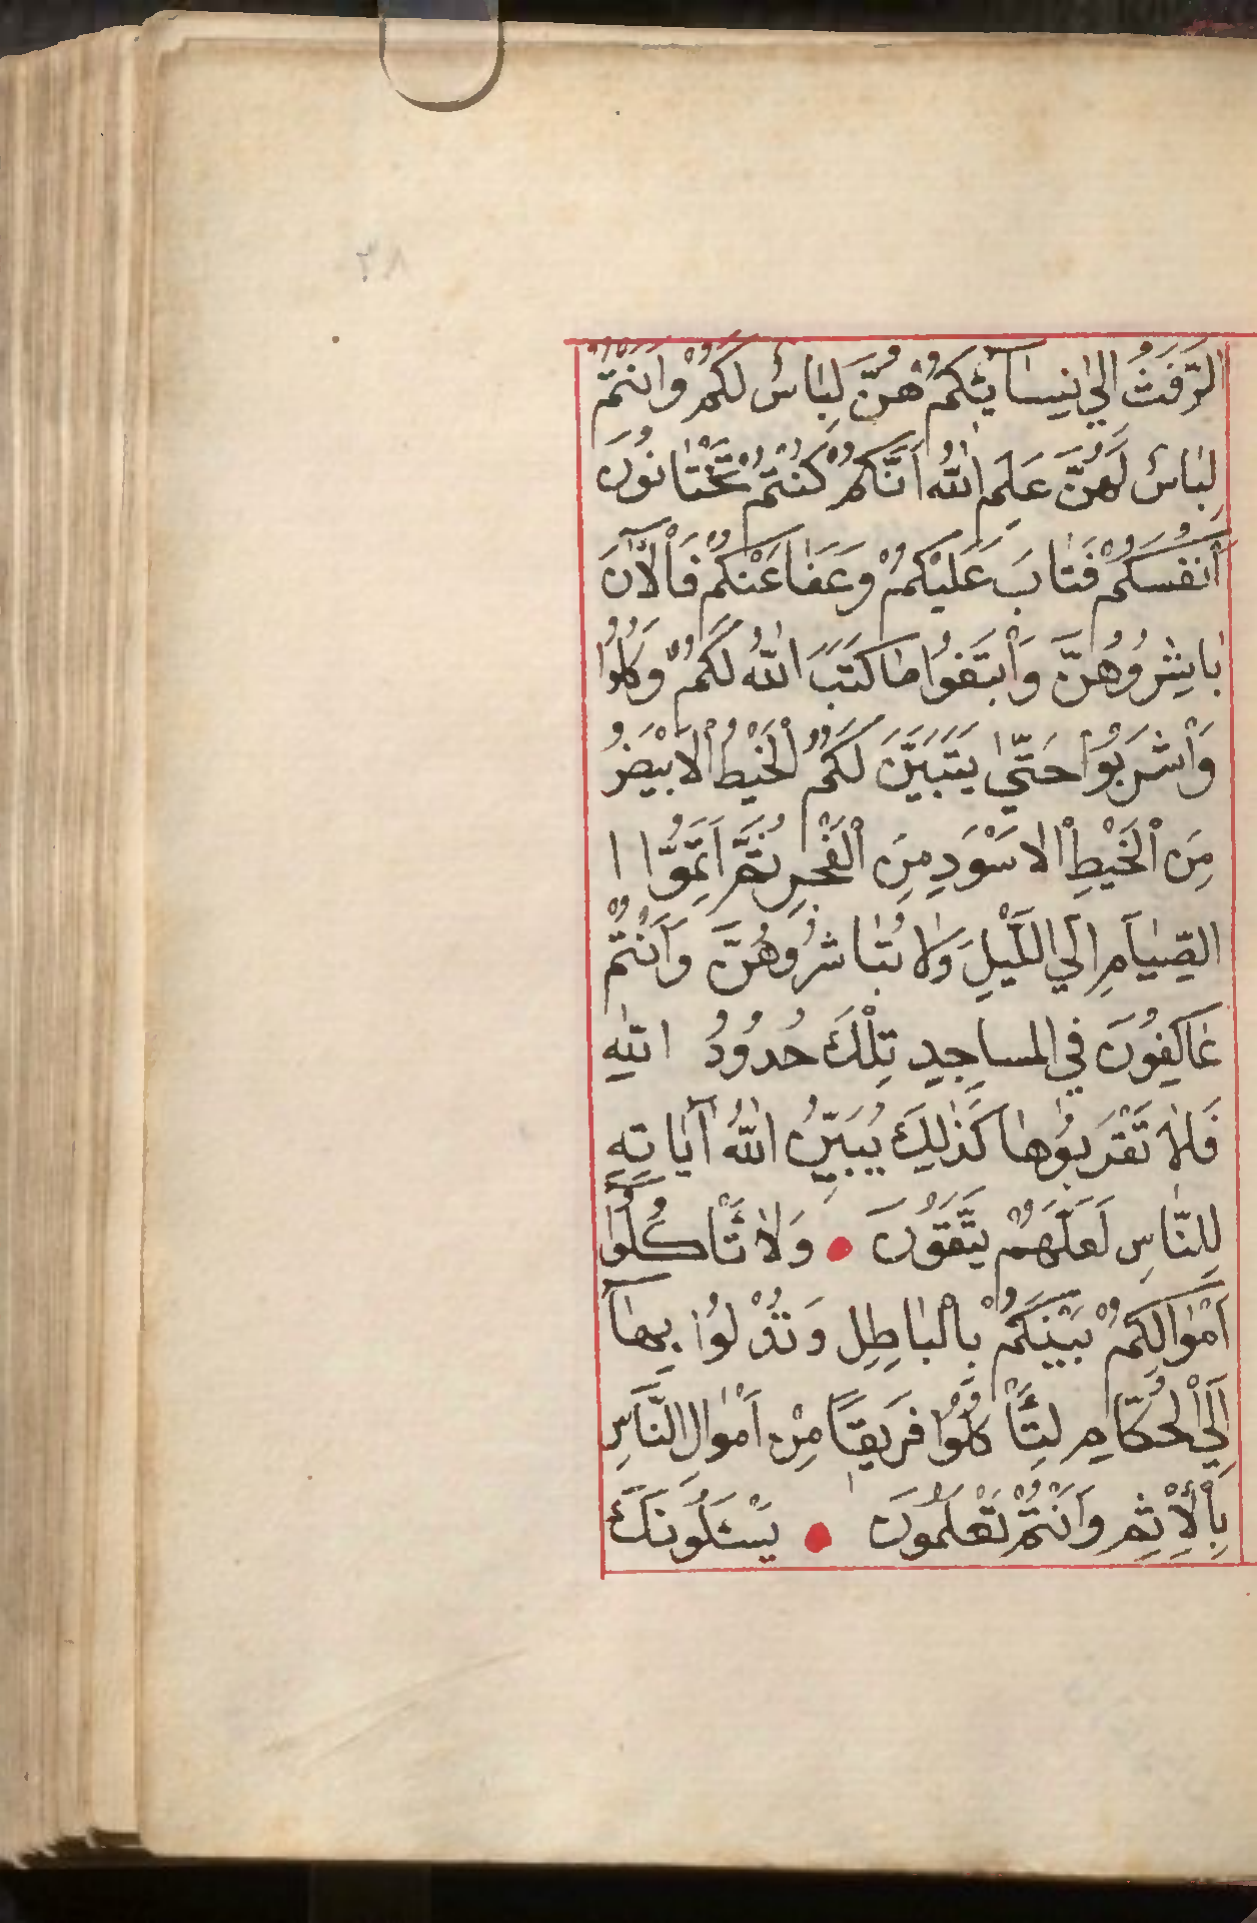 ٣٨
الرَّفَثُ اِلٰي نِسَآئِكُمْ هُنَّ لِبَاسٌ لَكُمْ وَاَنْتُمْ
لِبَاسٌ لَهُنَّ عَلِمَ اللّٰهُ اَنَّكُمْ كُنْتُمْ تَخْتَانُونَ
أَنْفُسَكُمْ فَتَابَ عَلَيْكُمْ وَعَفَا عَنْكُمْ فَاْلآنَ
بَاشِرُوهُنَّ وَاْبتَغُوا مَا كَتَبَ اللّٰهُ لَكُمْ وَكُلُوا
وَاْشْرَبُوا حَتّٰي يَتَبَيَّنَ لَكُمُ اْلخَيْطُ اْلاَبْيَضُ
مِنَ اْلخَيْطِ اْلاَسْوَدِ مِنَ اْلفَجْرِ ثُمَّ اَتِمُّوا ا
الصِّيَامَ اِلَي اللَّيْلِ وَلَا تُبَاشِرُوهُنَّ وَاَنْتُمْ
عَاكِفُونَ فِي المسَاجِدِ تِلْكَ حُدُودُ اللّٰهِ
فَلَا تَقْرَبُوهَا كَذٰلِكَ يُبَيِّنُ اللّٰهُ آيَاتِهِ
لِلنَّاسِ لَعَلَّهُمْ يَتَّقُونَ وَلَا تَأْكُلُوا
اَمْوَالَكُمْ بَيْنَكُمْ بِاْلبَاطِلِ وَتُدْلُوا بِهَآ
اِلَي اْلحُكَّامِ لِتَأْكُلُوا فَرِيقًا مِنْ اَمْوَالِ النَّاسِ
بِاْلإِثْمِ وَاَنْتُمْ تَعْلَمُونَ يَسْئَلُونَكَ